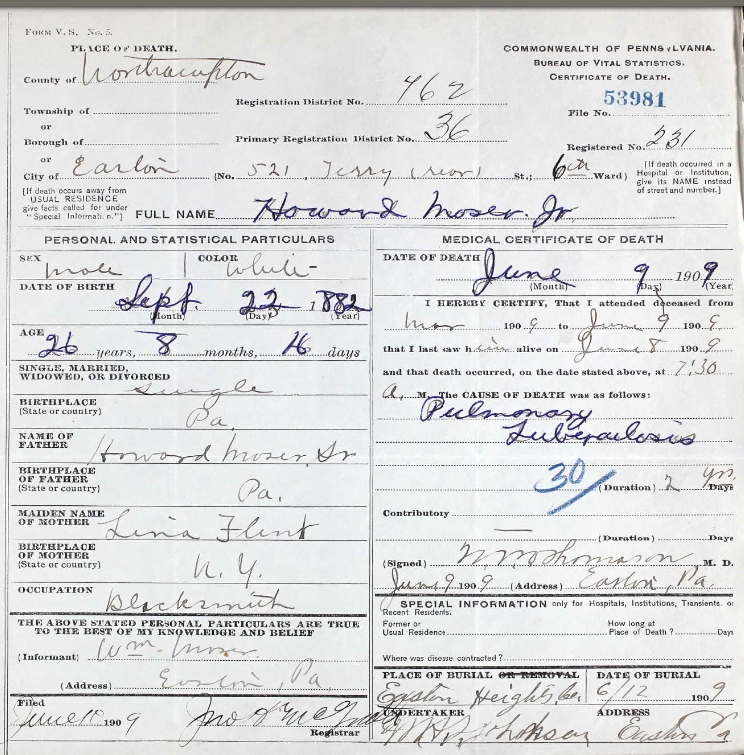 FORM V. S. No. 5.
PLACE OF DEATH.
County of Northampton
Township of
or
Borough of
or
City of Easton
Registration District No. 462
Primary Registration District No. 36
COMMONWEALTH OF PENNSYLVANIA.
BUREAU OF VITAL STATISTICS.
CERTIFICATE OF DEATH.
53981
File No.
Registered No. 231
(No. 521, Ferry (rear) St.; 6th Ward)
[If death occurred in a Hospital or Institution, give its NAME instead of street and number.]
[If death occurs away from USUAL RESIDENCE give facts called for under "Special Information."]
FULL NAME Howard Moser Jr
PERSONAL AND STATISTICAL PARTICULARS
SEX male
COLOR White
DATE OF BIRTH Sept. 23 1882
(Month) (Day) (Year)
AGE
26 years, 8 months, 16 days
SINGLE, MARRIED,
WIDOWED, OR DIVORCED Single
BIRTHPLACE
(State or country) Pa.
NAME OF
FATHER Howard Moser, Sr
BIRTHPLACE
OF FATHER
(State or country) Pa.
MAIDEN NAME
OF MOTHER Flint
BIRTHPLACE
OF MOTHER
(State or country) N. Y.
OCCUPATION Blacksmith
THE ABOVE STATED PERSONAL PARTICULARS ARE TRUE
TO THE BEST OF MY KNOWLEDGE AND BELIEF
(Informant) Wm. Moser
(Address) Easton, Pa
Filed
June 10 1909
Registrar
MEDICAL CERTIFICATE OF DEATH
DATE OF DEATH June 9 1909
(Month) (Day) (Year)
I HEREBY CERTIFY, That I attended deceased from
Mar 1909 to June 9 1909.
that I last saw him alive on June 8 1909
and that death occurred, on the date stated above, at 7:30
a. M. The CAUSE OF DEATH was as follows:
Pulmonary
Tuberculosis
30
(Duration) 2 yrs. Days
Contributory
(Duration) Days
(Signed) Thomason M. D.
June 9 1909 (Address) Easton, Pa.
SPECIAL INFORMATION only for Hospitals, Institutions, Transients, or
Recent Residents.
Former or
Usual Residence
How long at
Place of Death? Days
Where was disease contracted?
PLACE OF BURIAL OR REMOVAL
Easton Heights Ce.
DATE OF BURIAL
6/12 1909
UNDERTAKER
Johnson
ADDRESS
Easton Pa